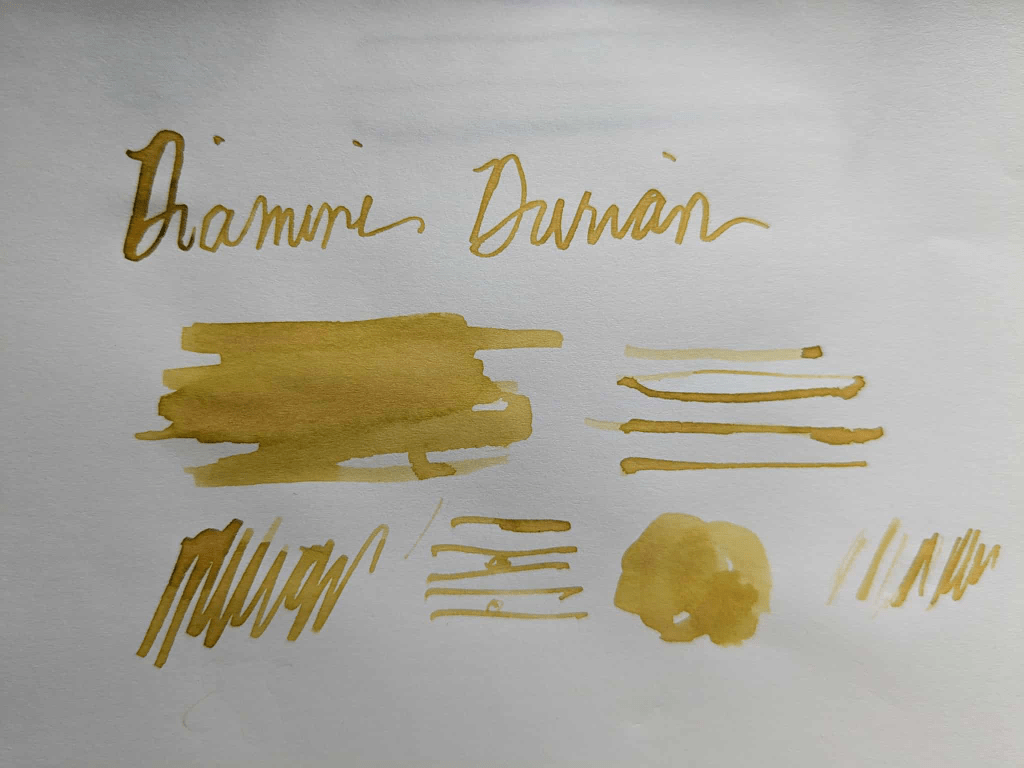 Diamine Durian